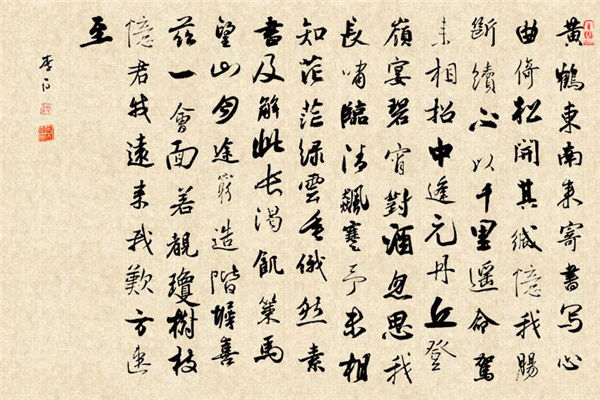 黄鶴東南来寄書写心
曲倚松開其緘憶我腸
斷續不以千里遥命駕
来相招中逢元丹丘登
嶺宴碧宵對酒忽思我
長嘯臨清飆蹇予未相
知茫茫緑雲垂俄然素
書及解此長渴飢策馬
望山月途窮造階墀喜
兹一會面若覩瓊樹枝
憶君我遠来我歡方速
至
李白